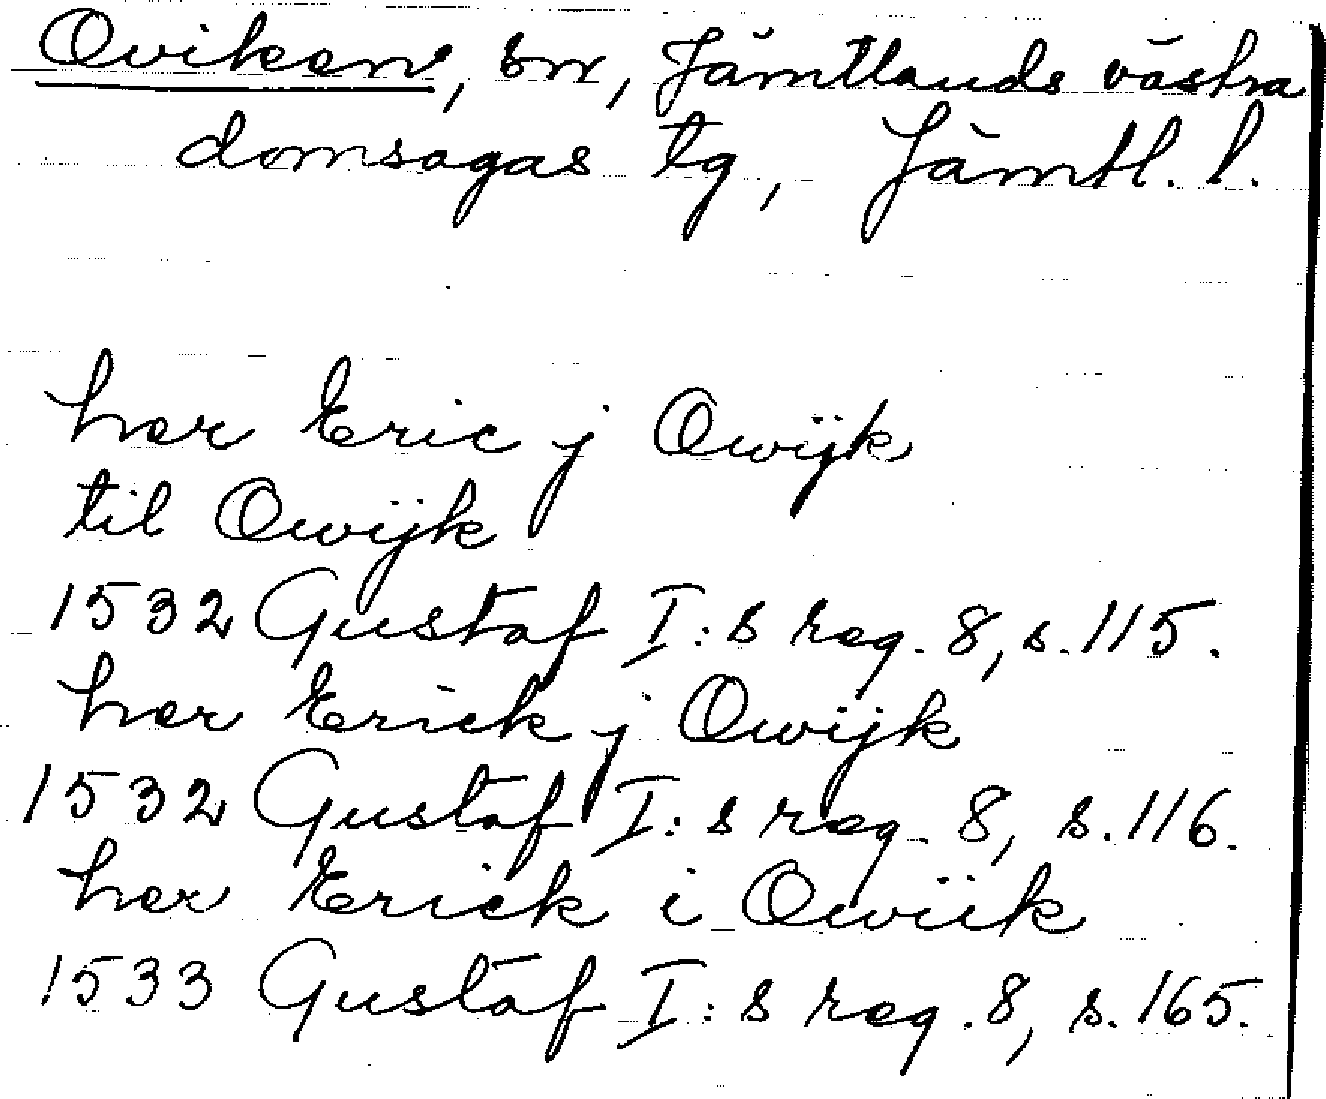 Oviken, sn, Jämtlands västra
domsagas tg, Jämtl. l.
her Eric j Owijk
til Owijk
1532 Gustaf I:s reg. 8, s. 115.
her Erick j Owijk
1532 Gustaf I:s reg. 8, s. 116.
her Erick i Owiik
1533 Gustaf I:s reg. 8, s. 165.